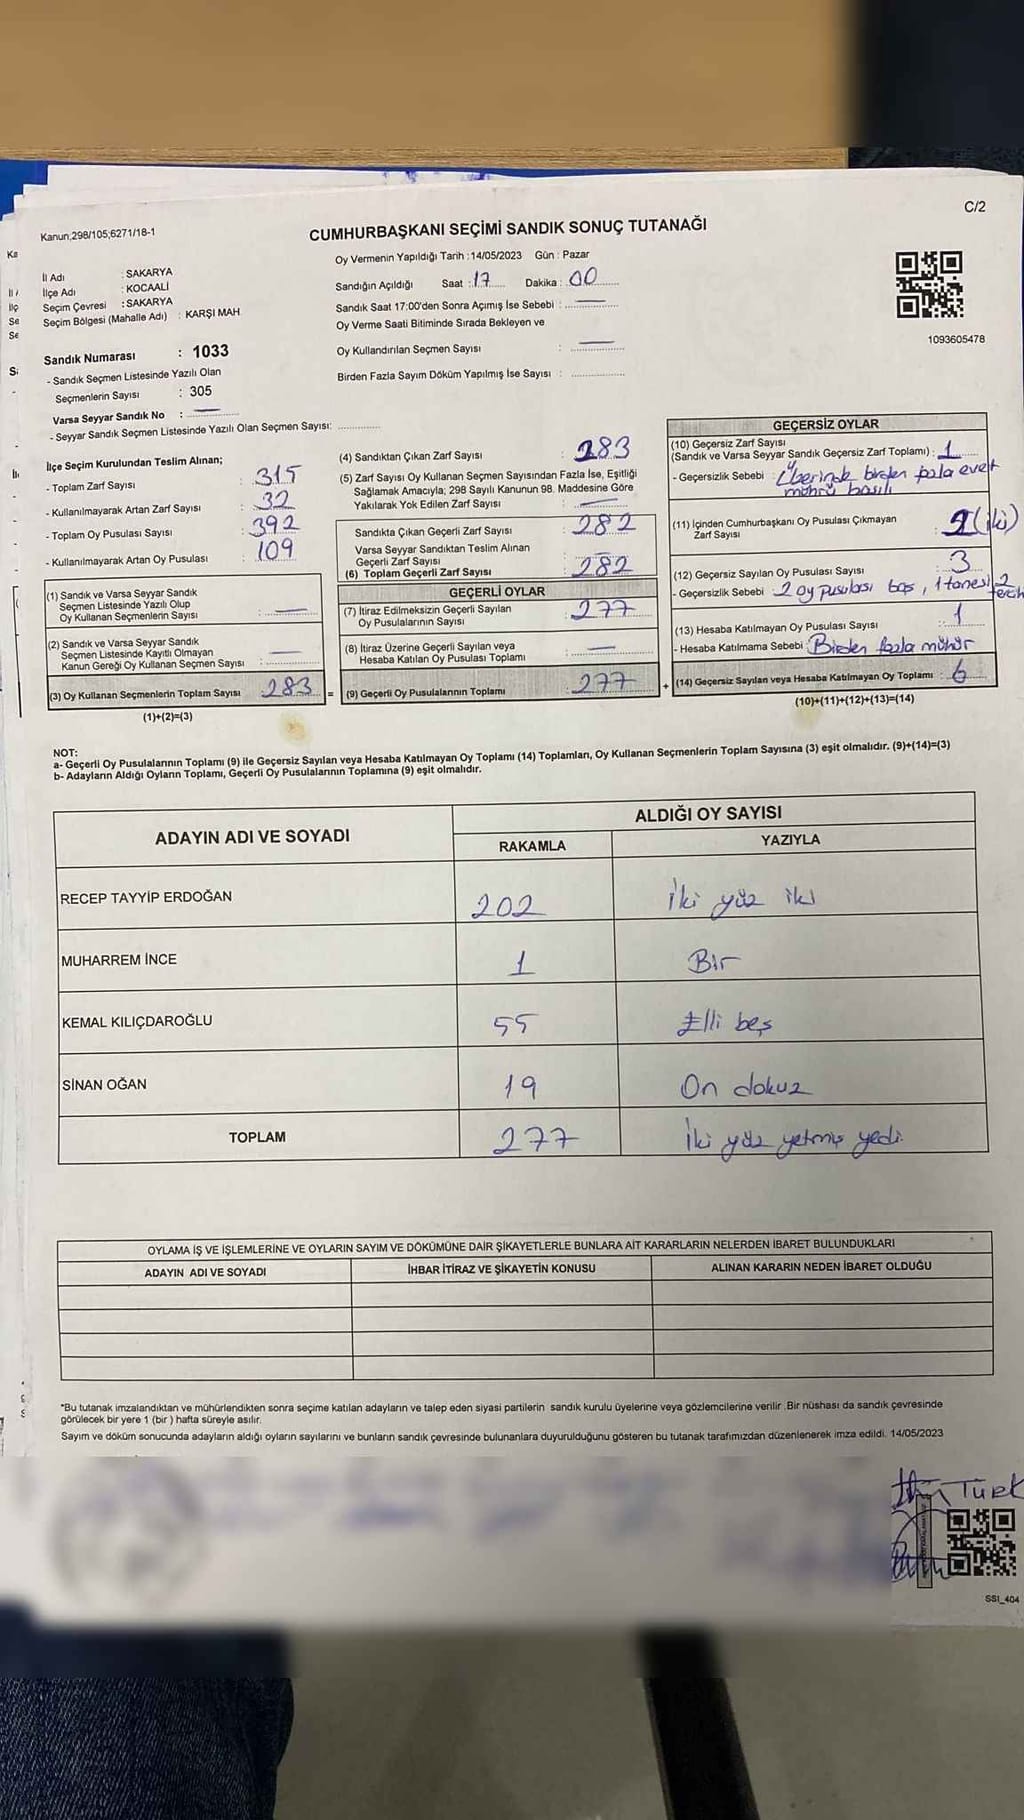 C/2
Kanun,298/105;6271/18-1
CUMHURBAŞKANI SEÇİMİ SANDIK SONUÇ TUTANAĞI
İl Adı : SAKARYA
İlçe Adı : KOCAALİ
Seçim Çevresi : SAKARYA
Seçim Bölgesi (Mahalle Adı) : KARŞI MAH
Oy Vermenin Yapıldığı Tarih :14/05/2023 Gün : Pazar
Sandığın Açıldığı Saat : 17 Dakika : 00
Sandık Saat 17:00'den Sonra Açımış İse Sebebi : —
Oy Verme Saati Bitiminde Sırada Bekleyen ve
Oy Kullandırılan Seçmen Sayısı : —
Birden Fazla Sayım Döküm Yapılmış İse Sayısı :
1093605478
Sandık Numarası : 1033
- Sandık Seçmen Listesinde Yazılı Olan
Seçmenlerin Sayısı : 305
Varsa Seyyar Sandık No : —
- Seyyar Sandık Seçmen Listesinde Yazılı Olan Seçmen Sayısı:
İlçe Seçim Kurulundan Teslim Alınan;
- Toplam Zarf Sayısı : 315
- Kullanılmayarak Artan Zarf Sayısı : 32
- Toplam Oy Pusulası Sayısı : 392
- Kullanılmayarak Artan Oy Pusulası : 109
(1) Sandık ve Varsa Seyyar Sandık
Seçmen Listesinde Yazılı Olup
Oy Kullanan Seçmenlerin Sayısı : —
(2) Sandık ve Varsa Seyyar Sandık
Seçmen Listesinde Kayıtlı Olmayan
Kanun Gereği Oy Kullanan Seçmen Sayısı : —
(3) Oy Kullanan Seçmenlerin Toplam Sayısı : 283
(1)+(2)=(3)
(4) Sandıktan Çıkan Zarf Sayısı : 283
(5) Zarf Sayısı Oy Kullanan Seçmen Sayısından Fazla İse, Eşitliği
Sağlamak Amacıyla; 298 Sayılı Kanunun 98. Maddesine Göre
Yakılarak Yok Edilen Zarf Sayısı : —
Sandıkta Çıkan Geçerli Zarf Sayısı : 282
Varsa Seyyar Sandıktan Teslim Alınan
Geçerli Zarf Sayısı : —
(6) Toplam Geçerli Zarf Sayısı : 282
GEÇERLİ OYLAR
(7) İtiraz Edilmeksizin Geçerli Sayılan
Oy Pusulalarının Sayısı : 277
(8) İtiraz Üzerine Geçerli Sayılan veya
Hesaba Katılan Oy Pusulası Toplamı : —
= (9) Geçerli Oy Pusulalarının Toplamı : 277 +
GEÇERSİZ OYLAR
(10) Geçersiz Zarf Sayısı
(Sandık ve Varsa Seyyar Sandık Geçersiz Zarf Toplamı) : 1
- Geçersizlik Sebebi : Üzerinde birden fazla evet
mührü basılı
(11) İçinden Cumhurbaşkanı Oy Pusulası Çıkmayan
Zarf Sayısı : 2 (iki)
(12) Geçersiz Sayılan Oy Pusulası Sayısı : 3
- Geçersizlik Sebebi : 2 oy pusulası boş, 1 tanesi 2
tercih
(13) Hesaba Katılmayan Oy Pusulası Sayısı : 1
- Hesaba Katılmama Sebebi : Birden fazla mühür
(14) Geçersiz Sayılan veya Hesaba Katılmayan Oy Toplamı : 6
(10)+(11)+(12)+(13)=(14)
NOT:
a- Geçerli Oy Pusulalarının Toplamı (9) ile Geçersiz Sayılan veya Hesaba Katılmayan Oy Toplamı (14) Toplamları, Oy Kullanan Seçmenlerin Toplam Sayısına (3) eşit olmalıdır. (9)+(14)=(3)
b- Adayların Aldığı Oyların Toplamı, Geçerli Oy Pusulalarının Toplamına (9) eşit olmalıdır.
ADAYIN ADI VE SOYADI ALDIĞI OY SAYISI
RAKAMLA YAZIYLA
RECEP TAYYİP ERDOĞAN 202 İki yüz iki
MUHARREM İNCE 1 Bir
KEMAL KILIÇDAROĞLU 55 Elli beş
SİNAN OĞAN 19 On dokuz
TOPLAM 277 İki yüz yetmiş yedi
OYLAMA İŞ VE İŞLEMLERİNE VE OYLARIN SAYIM VE DÖKÜMÜNE DAİR ŞİKAYETLERLE BUNLARA AİT KARARLARIN NELERDEN İBARET BULUNDUKLARI
ADAYIN ADI VE SOYADI İHBAR İTİRAZ VE ŞİKAYETİN KONUSU ALINAN KARARIN NEDEN İBARET OLDUĞU
*Bu tutanak imzalandıktan ve mühürlendikten sonra seçime katılan adayların ve talep eden siyasi partilerin sandık kurulu üyelerine veya gözlemcilerine verilir .Bir nüshası da sandık çevresinde
görülecek bir yere 1 (bir ) hafta süreyle asılır.
Sayım ve döküm sonucunda adayların aldığı oyların sayılarını ve bunların sandık çevresinde bulunanlara duyurulduğunu gösteren bu tutanak tarafımızdan düzenlenerek imza edildi. 14/05/2023
TÜRK
SSI_404